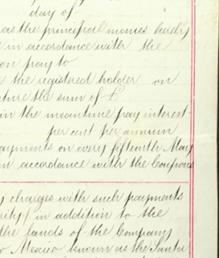 day of
as the principal monies hereby
in accordance with the
on pay to
the registered holder on
ture the sum of £
in the meantime pay interest
per cent per annum
payments on every fifteenth May
in accordance with the Conditions
charges with such payments
in addition to the
the lands of the Company
Mexico known as the Santa